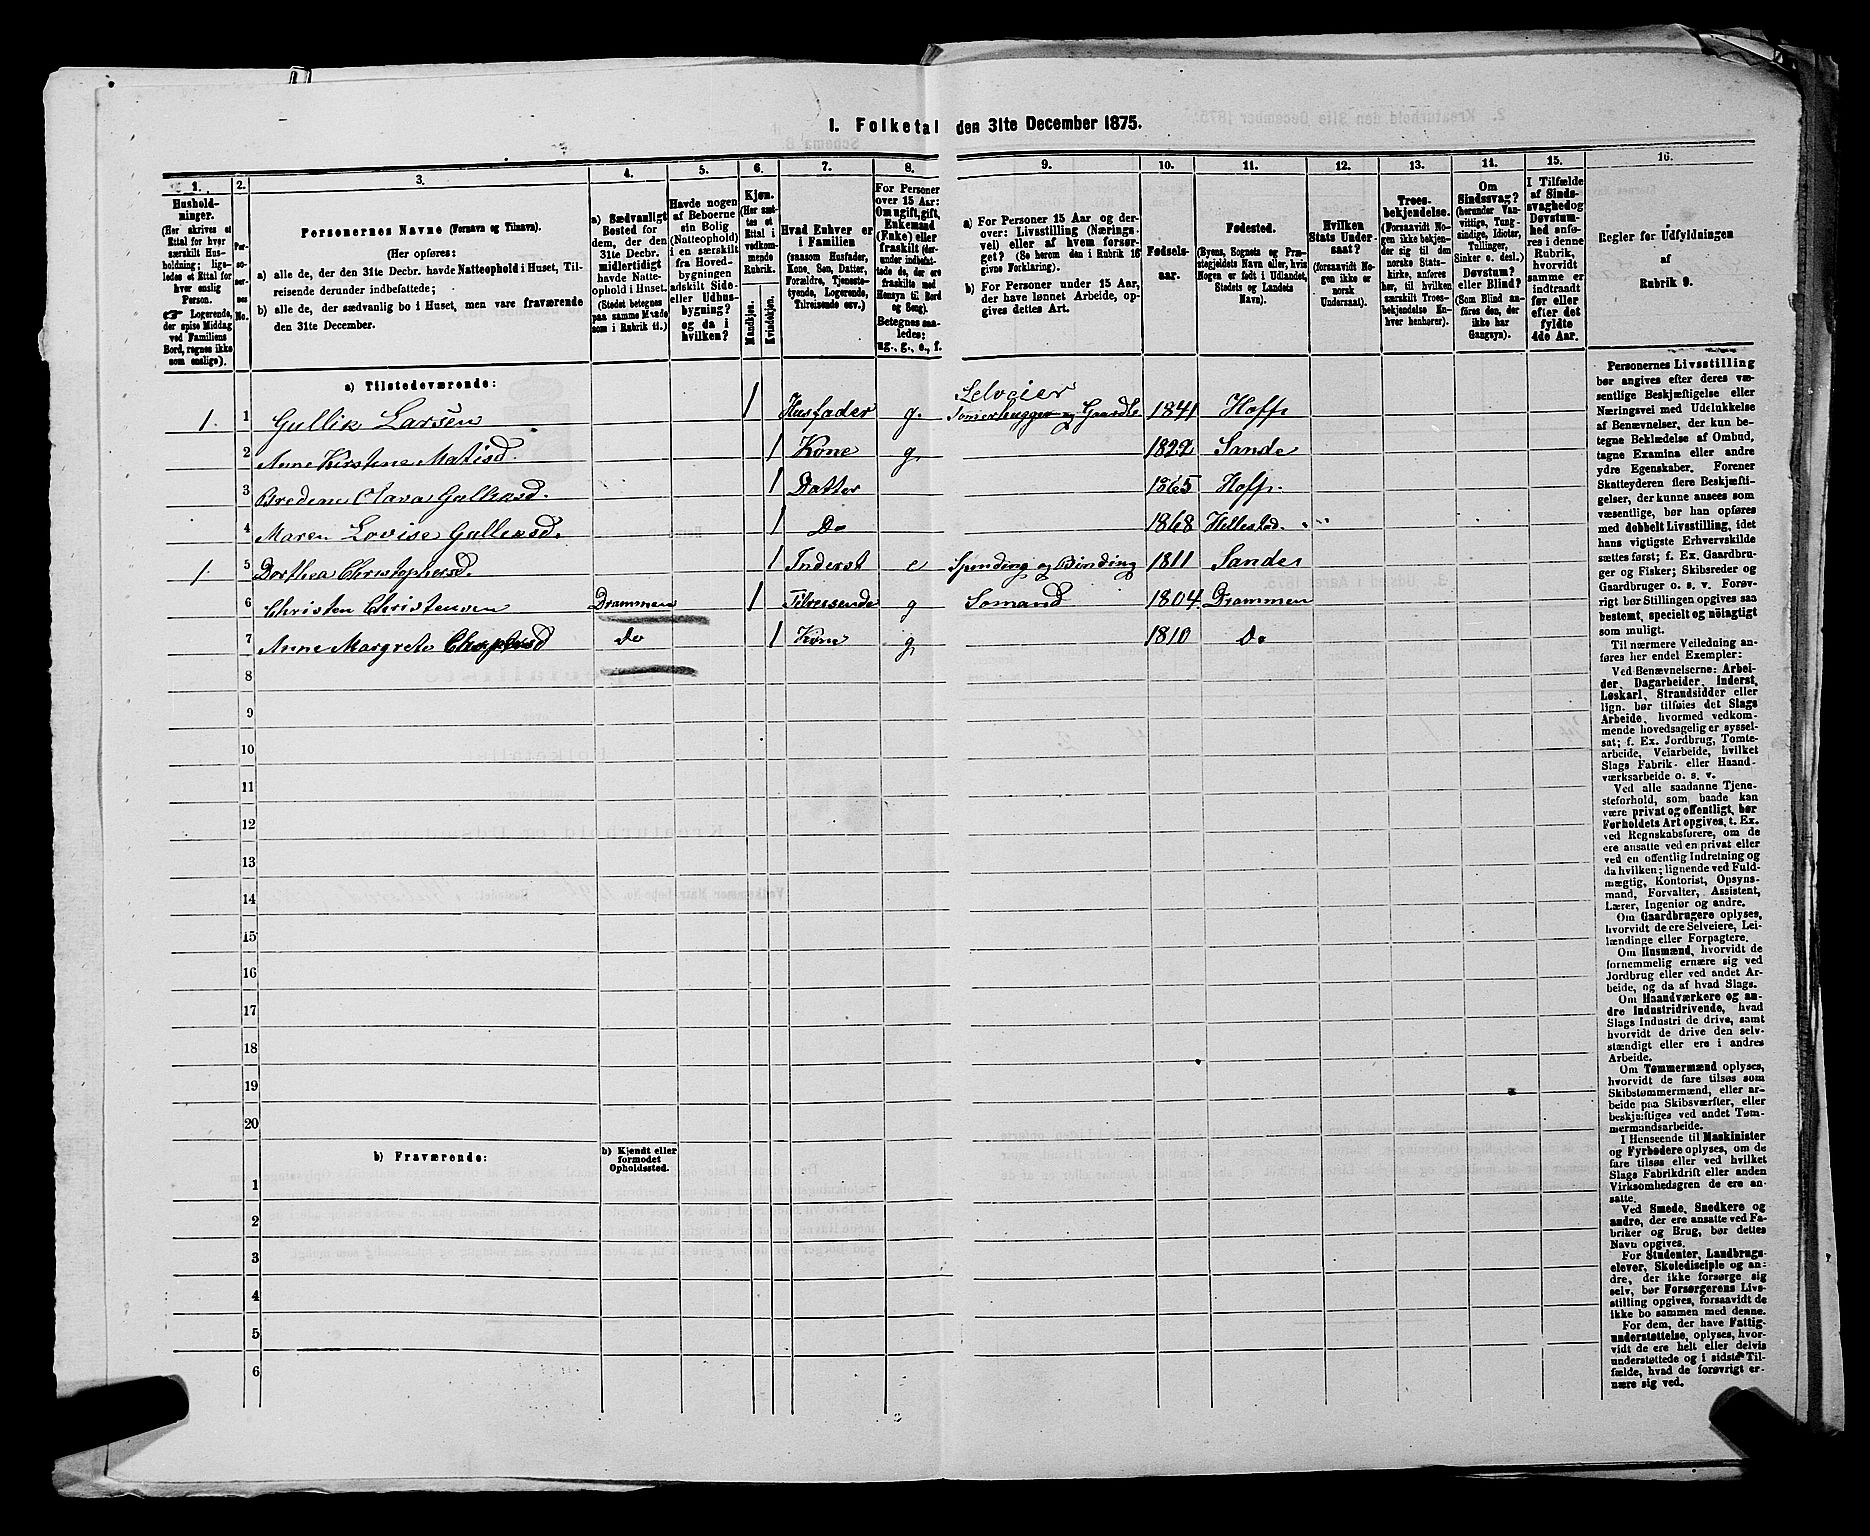 I. Folketal den 31te December 1875.
1. 2. 3. 4. 5. 6. 7. 8. 9. 10. 11. 12. 13. 14. 15. 16.
Hushold-
ninger.
(Her skrives et
Ettal for hver
særskilt Hus-
holdning; lige-
ledes et Ettal for
hver enslig
Person.
☞ Logerende,
der spise Middag
ved Familiens
Bord, regnes ikke
som enslige).
Per-
so-
ner-
nes
No.
Personernes Navne (Fornavn og Tilnavn).
(Her opføres:
a) alle de, der den 31te Decbr. havde Natteophold i Huset, Til-
reisende derunder indbefattede;
b) alle de, der sædvanlig bo i Huset, men vare fraværende
den 31te December.
a) Sædvanligt
Bosted for
dem, der den
31te Decbr.
midlertidigt
havde Natte-
ophold i Huset.
(Stedet betegnes
paa samme Maade
som i Rubrik 11.)
Havde nogen
af Beboerne
sin Bolig
(Natteophold)
i en særskilt
fra Hoved-
bygningen
adskilt Side-
eller Udhus-
bygning?
og da i
hvilken?
Kjøn.
(Her sæt-
tes et
Ettal i
vedkom-
mende
Rubrik.
Mandkjøn.
Kvindekjøn.
Hvad Enhver er
i Familien
(saasom Husfader,
Kone, Søn, Datter,
Forældre, Tjeneste-
tyende, Logerende,
Tilreisende osv.)
For Personer
over 15 Aar:
Om ugift, gift,
Enkemand
(Enke) eller
fraskilt (her-
under indbefat-
tede de, der ere
fraskilte med
Hensyn til Bord
og Seng).
Betegnes saa-
ledes:
ug., g., e., f.
a) For Personer 15 Aar og der-
over: Livsstilling (Nærings-
vei) eller af hvem forsør-
get? (Se herom den i Rubrik 16
givne Forklaring).
b) For Personer under 15 Aar,
der have lønnet Arbeide, op-
gives dettes Art.
Fødsels-
aar.
Fødested.
(Byens, Sognets og Præ-
stegjeldets Navn eller, hvis
Nogen er født i Udlandet,
Stedets og Landets
Navn).
Hvilken
Stats Under-
saat?
(forsaavidt No-
gen ikke er
norsk
Undersaat).
Troes-
bekjendelse.
(Forsaavidt No-
gen ikke bekjen-
der sig til den
norske Stats-
kirke, anføres
her, til hvilken
særskilt Troes-
bekjendelse En-
hver henhører).
Om
Sindssvag?
(herunder Van-
vittige, Tung-
sindige, Idioter,
Tullinger,
Sinker o. desl.)
Døvstum?
eller Blind?
(Som Blind an-
føres den, der
ikke har
Gangsyn).
I Tilfælde
af Sinds-
svaghed og
Døvstum-
hed anfø-
res i denne
Rubrik,
hvorvidt
samme er
indtraadt
før eller
efter det
fyldte
4de Aar.
Regler for Udfyldningen
af
Rubrik 9.
a) Tilstedeværende:
Selveier
1. 1 Gullik Larsen 1 Husfader g. Gaardb 1841 Hoff
2 Anne Kirstine Matisd. 1 Kone g. 1822 Sande
3 Olava 1 Datter 1865 Hoff.
4 Maren Lovise 1 Do 1868 Hillestad
1. 5 Dorthea Christophersd. 1 Inderst e Spinding og Binding 1811 Sande
6 Christen Christensen Drammen 1 Tilreisende g Sømand 1804 Drammen
7 Anne Margrete do 1 Kone g. 1810 Do
8
9
10
11
12
13
14
15
16
17
18
19
20
b) Fraværende:
b) Kjendt eller
formodet
Opholdssted.
1
2
3
4
5
6
Personernes Livsstilling
bør angives efter deres væ-
sentlige Beskjæftigelse eller
Næringsvei med Udelukkelse
af Benævnelser, der kun be-
tegne Beklædelse af Ombud,
tagne Examina eller andre
ydre Egenskaber. Forener
Skatteyderen flere Beskjæfti-
gelser, der kunne ansees som
væsentlige, bør han opføres
med dobbelt Livsstilling, idet
hans vigtigste Erhvervskilde
sættes først; f. Ex. Gaardbru-
ger og Fisker; Skibsreder og
Gaardbruger o. s. v. Forøv-
rigt bør Stillingen opgives saa
bestemt, specielt og nøiagtigt
som muligt.
Til nærmere Veiledning an-
føres her endel Exempler:
Ved Benævnelserne: Arbei-
der, Dagarbeider, Inderst,
Løskarl, Strandsidder eller
lign. bør tilføies det Slags
Arbeide, hvormed vedkom-
mende hovedsagelig er syssel-
sat; f. Ex. Jordbrug, Tomte-
arbeide, Veiarbeide, hvilket
Slags Fabrik- eller Haand-
værksarbeide o. s. v.
Ved alle saadanne Tjene-
steforhold, som baade kan
være privat og offentligt, bør
Forholdets Art opgives, t. Ex.
ved Regnskabsførere, om de
ere ansatte ved en privat eller
ved en offentlig Indretning og
da hvilken; lignende ved Fuld-
mægtig, Kontorist, Opsyns-
mand, Forvalter, Assistent,
Lærer, Ingeniør og andre.
Om Gaardbrugere oplyses,
hvorvidt de ere Selveiere, Lei-
lændinge eller Forpagtere.
Om Husmænd, hvorvidt de
fornemmelig ernære sig ved
Jordbrug eller ved andet Ar-
beide, og da af hvad Slags.
Om Haandværkere og an-
dre Industridrivende, hvad
Slags Industri de drive, samt
hvorvidt de drive den selv-
stændigt eller ere i andres
Arbeide.
Om Tømmermænd oplyses,
hvorvidt de fare tilsøs som
Skibstømmermænd, eller ar-
beide paa Skibsværfter, eller
beskjæftiges ved andet Tøm-
mermandsarbeide.
I Henseende til Maskinister
og Fyrbødere oplyses, om de
fare tilsøs eller ved hvilket
Slags Fabrikdrift eller anden
Virksomhedsgren de ere an-
satte.
Ved Smede, Snedkere og
andre, der ere ansatte ved Fa-
briker og Brug, bør dettes
Navn opgives.
For Studenter, Landbrugs-
elever, Skoledisciple og an-
dre, der ikke forsørge sig
selv, bør Forsørgerens Livs-
stilling opgives, forsaavidt de
ikke bo sammen med denne.
For dem, der have Fattig-
understøttelse, oplyses, hvor-
vidt de ere helt eller delvis
understøttede og i sidste Til-
fælde, hvad de forøvrigt er-
nære sig ved.